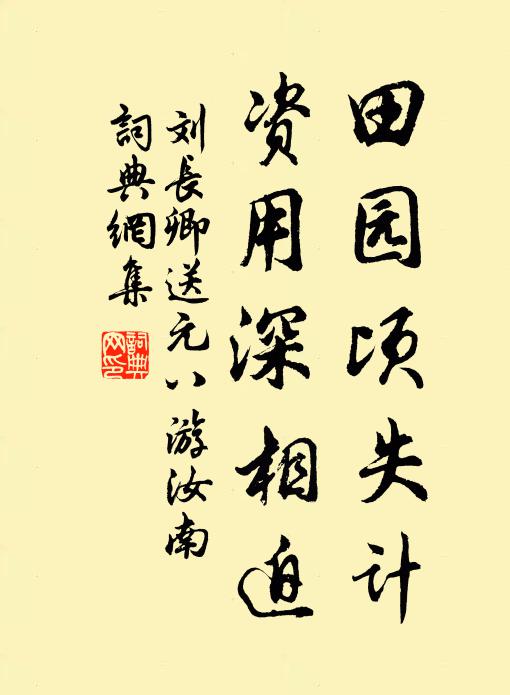 田园顷失计
资用深相迫
刘長卿送元八游汝南
詞典網集
詞典网印